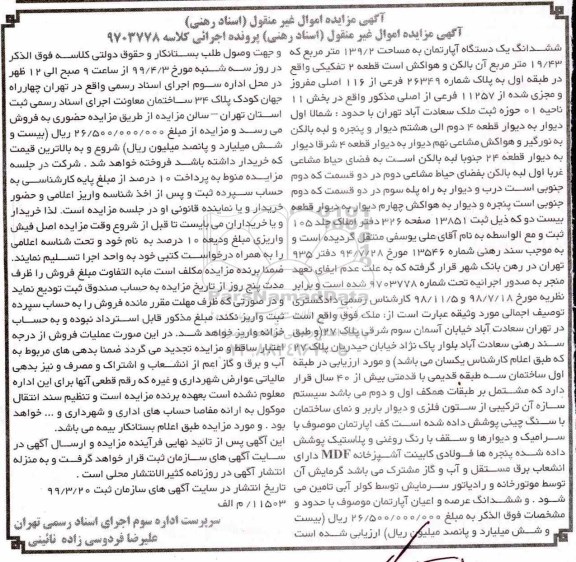 آگهی مزایده اموال غیر منقول (اسناد رهنی)
آگهی مزایده اموال غیر منقول (اسناد رهنی) پرونده اجرائی کلاسه ۹۷۰۳۷۷۸
ششدانگ یک دستگاه آپارتمان به مساحت ۱۳۹/۲ متر مربع که
۱۹/۴۳ متر مربع آن بالکن و هواکش است قطعه ۲ تفکیکی واقع
در طبقه اول به پلاک شماره ۲۶۳۴۹ فرعی از ۱۱۶ اصلی مفروز
و مجزی شده از ۱۱۲۵۷ فرعی از اصلی مذکور واقع در بخش ۱۱
ناحیه ۰۱ حوزه ثبت ملک سعادت آباد تهران با حدود : شمالا اول
دیوار به دیوار قطعه ۴ دوم الی هشتم دیوار و پنجره و لبه بالکن
به نورگیر و هواکش مشاعی نهم دیوار به دیوار قطعه ۴ شرقا دیوار
به دیوار قطعه ۲۴ جنوبا لبه بالکن است به فضای حیاط مشاعی
غربا اول لبه بالکن بفضای حیاط مشاعی دوم در دو قسمت که دوم
جنوبی است درب و دیوار به راه پله سوم در دو قسمت که دوم
جنوبی است پنجره و دیوار به هواکش چهارم دیوار به دیوار قطعه
بیست دو که ذیل ثبت ۱۳۸۵۱ صفحه ۳۲۶ دفتر املاک جلد ۱۰۵
ثبت و مع الواسطه به نام آقای علی یوسفی منتقل گردیده است و
به موجب سند رهنی شماره ۱۳۵۴۶ مورخ ۹۴/۷/۲۸ دفتر ۹۳۵
تهران در رهن بانک شهر قرار گرفته که به علت عدم ایفای تعهد
منجر به صدور اجرائیه تحت شماره ۹۷۰۳۷۷۸ شده است و برابر
نظریه مورخ ۹۸/۷/۱۸ و ۹۸/۱۱/۵ کارشناس رسمی دادگستری
توصیف اجمالی مورد وثیقه عبارت است از: ملک فوق واقع است
در تهران سعادت آباد خیابان آسمان سوم شرقی پلاک ۲۷ (و طبق
سند رهنی سعادت آباد بلوار پاک نژاد خیابان حیدریان پلاک ۲۷
که طبق اعلام کارشناس یکسان می باشد) و مورد ارزیابی در طبقه
اول ساختمان سه طبقه قدیمی با قدمتی بیش از ۴۰ سال قرار
دارد که مشتمل بر طبقات همکف اول و دوم می باشد سیستم
سازه آن ترکیبی از ستون فلزی و دیوار باربر و نمای ساختمان
با سنگ چینی پوشش شده است کف اپارتمان موصوف با
سرامیک و دیوارها و سقف با رنگ روغنی و پلاستیک پوشش
داده شده پنجره ها فولادی کابینت آشپزخانه MDF دارای
انشعاب برق مستقل و آب و گاز مشترک می باشد گرمایش آن
توسط موتورخانه و رادیاتور سرمایش توسط کولر آبی تامین می
شود . و ششدانگ عرصه و اعیان آپارتمان موصوف با حدود و
مشخصات فوق الذکر به مبلغ ۲۶/۵۰۰/۰۰۰/۰۰۰ ریال (بیست
و شش میلیارد و پانصد میلیون ریال) ارزیابی شده است
و جهت وصول طلب بستانکار و حقوق دولتی کلاسه فوق الذکر
در روز سه شنبه مورخ ۹۹/۴/۳ از ساعت ۹ صبح الی ۱۲ ظهر
در محل اداره سوم اجرای اسناد رسمی واقع در تهران چهارراه
جهان کودک پلاک ۳۴ ساختمان معاونت اجرای اسناد رسمی ثبت
استان تهران – سالن مزایده از طریق مزایده حضوری به فروش
می رسد و مزایده از مبلغ ۲۶/۵۰۰/۰۰۰/۰۰۰ ریال (بیست و
شش میلیارد و پانصد میلیون ریال) شروع و به بالاترین قیمت
که خریدار داشته باشد فروخته خواهد شد . شرکت در جلسه
مزایده منوط به پرداخت ۱۰ درصد از مبلغ پایه کارشناسی به
حساب سپرده ثبت و پس از اخذ شناسه واریز اعلامی و حضور
خریدار و یا نماینده قانونی او در جلسه مزایده است. لذا خریدار
و یا خریداران می بایست تا قبل از شروع وقت مزایده اصل فیش
واریزی مبلغ ودیعه ۱۰ درصد به نام خود و تحت شناسه اعلامی
را به همراه درخواست کتبی خود به واحد اجرا تسلیم نمایند.
ضمنا برنده مزایده مکلف است مابه التفاوت مبلغ فروش را ظرف
مدت پنج روز از تاریخ مزایده به حساب صندوق ثبت تودیع نماید
و در صورتی که ظرف مهلت مقرر مانده فروش را به حساب سپرده
ثبت واریز نکند، مبلغ مذکور قابل استرداد نبوده و به حساب
خزانه واریز خواهد شد. در این صورت عملیات فروش از درجه
اعتبار ساقط و مزایده تجدید می گردد ضمنا بدهی های مربوط به
آب و برق و گاز اعم از انشعاب و اشتراک و مصرف و نیز بدهی
مالیاتی عوارض شهرداری و غیره که رقم قطعی آنها برای این اداره
معلوم نشده است بعهده برنده مزایده است و تنظیم سند انتقال
موکول به ارائه مفاصا حساب های اداری و شهرداری و ... خواهد
بود . و مورد مزایده طبق اعلام بستانکار بیمه می باشد.
این آگهی پس از تائید نهایی فرآینده مزایده و ارسال آگهی در
سایت آگهی های سازمان ثبت قرار خواهد گرفت و به منزله
انتشار آگهی در روزنامه کثیرالانتشار محلی است .
تاریخ انتشار در سایت آگهی های سازمان ثبت ۹۹/۳/۲۰
۱۱۵۰۳/ م الف
سرپرست اداره سوم اجرای اسناد رسمی تهران
علیرضا فردوسی زاده نائینی